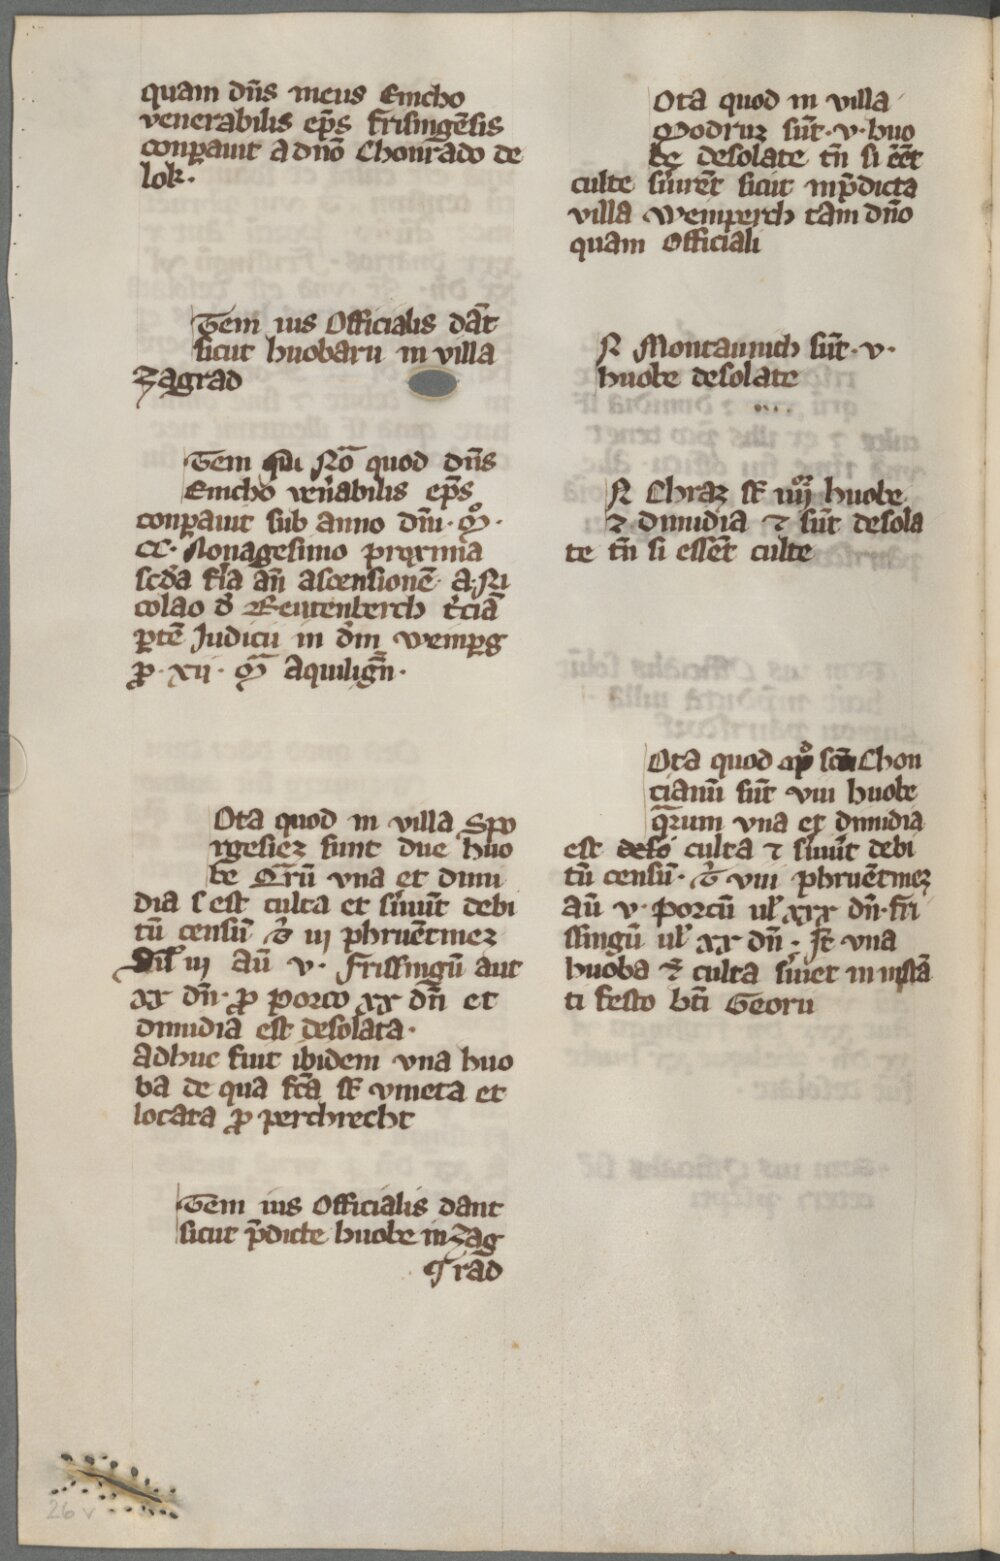 quam dn̄s meus Emcho
venerabilis ep̄s frisingēsis
conp̲auit a dn̄o Chonrado de
lok.
Tem ius Officialis dāt
sicut huobarii in villa
Zagrad
Tem Nō quod dn̄s
Emcho ven̾abilis ep̄s
conp̲auit sub anno dn̄i · mͦ ·
cc · Nonagesimo proxima
scd̄a fīa an̄ ascensionē · a · Ni
colao d̄ Reutenberch t̾ciā
p̲tē Judicii in dn̄i wemp̲g
ꝓ · xii · mͣ Aquiligēn̄ ·
Ota quod in villa Spo
rgesiez sunt due huo
be Qr̄ū vna et dimi
dia est culta et s̾uiūt debi
tū censū iii phruētmez
Sil̄ iii aū v · frissingū aut
xx dn̄ · ꝓ porco xx dn̄ et
dimidia est desolata ·
adhuc fuit ibidem vna huo
ba de qua fc̄a st̄ vineta et
locata ꝓ perchrecht
Tem ius Officialis dant
sicut p̄dicte huobe in Zag
Grad
Ota quod in villa
Modruz sūt · v · huo
be desolate tn̄ si eēt
culte s̾uirēt sicut in p̄dicta
villa wemperch tam dn̄o
quam Officiali
N Montaunich sūt · v ·
huobe desolate
N Chraz st̄ iiijͦʳ huobe
⁊ dimidia ⁊ sūt desola
te tn̄ si essēt culte
Ota quod apͦ scm̄ Chon
cianū sūt viii huobe
q̄rum vna et dimidia
est deso culta ⁊ s̾uiūt debi
tū censū · viii phruētmez
aū v · porcū ul̾ xxx dn̄ · fri
ssingū ul̾ xx dn̄ · It̄ vna
huoba culta s̾uiet in instā
ti festo bt̄i Georii
26 v